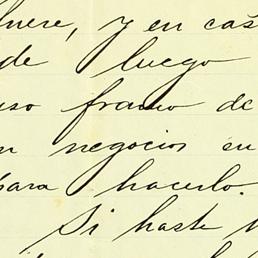 y en cas
de luego
uso franco de
n negocios en
para hacerlo.
Si haste